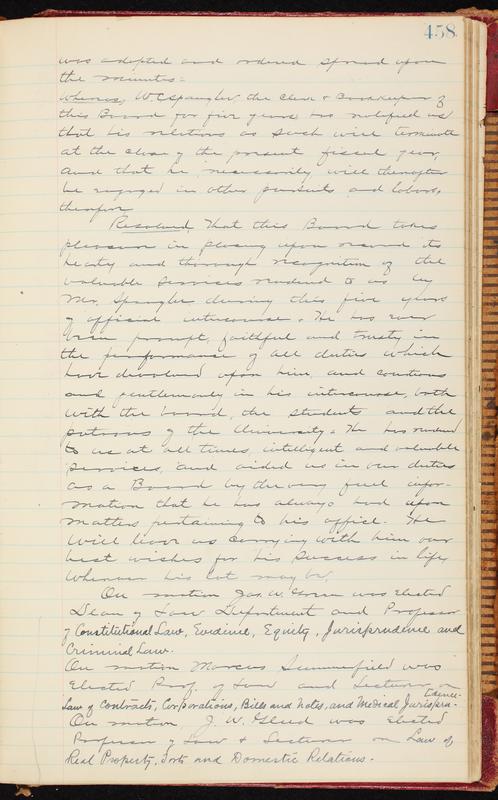 458
was adopted and ordered spread upon
the minutes:
Whereas, W C Spangler the Clerk & Bookkeeper of
this Board for five years has notified us
that his relations as such will terminate
at the close of the present fiscal year,
and that he necessarily will thereafter
be engaged in other pursuits and labors,
therefore
Resolved, That this Board takes
pleasure in placing upon record its
hearty and thorough recognition of the
valuable services rendered to us by
Mr. Spangler during the five years
of official intercourse. He has ever
been prompt, faithful and trusty in
the performance of all duties which
have devolved upon him, and courteous
and gentlemanly in his intercourse, both
with the board, the students and the
patrons of the University. He has rendered
to us at all times, intelligent and valuable
services, and aided us in our duties
as a Board by the very full infor-
mation that he has always had upon
matters pertaining to his office. He
will leave us carrying with him our
best wishes for his success in life
wherever his lot may be.
On motion Jas. W. Green was elected
Dean of Law Department and Professor
of Constitutional Law, Evidence, Equity, Jurisprudence and
Criminal Law.
On motion Marcus Summerfield was
elected Prof. of Law and Lecturer on
Law of Contracts, Corporations, Bills and Notes, and Medical Jurispru-
dence.
On motion J. W. Gleed was elected
Professor of Law & Lecturer on Law of
Real Property, Torts and Domestic Relations.